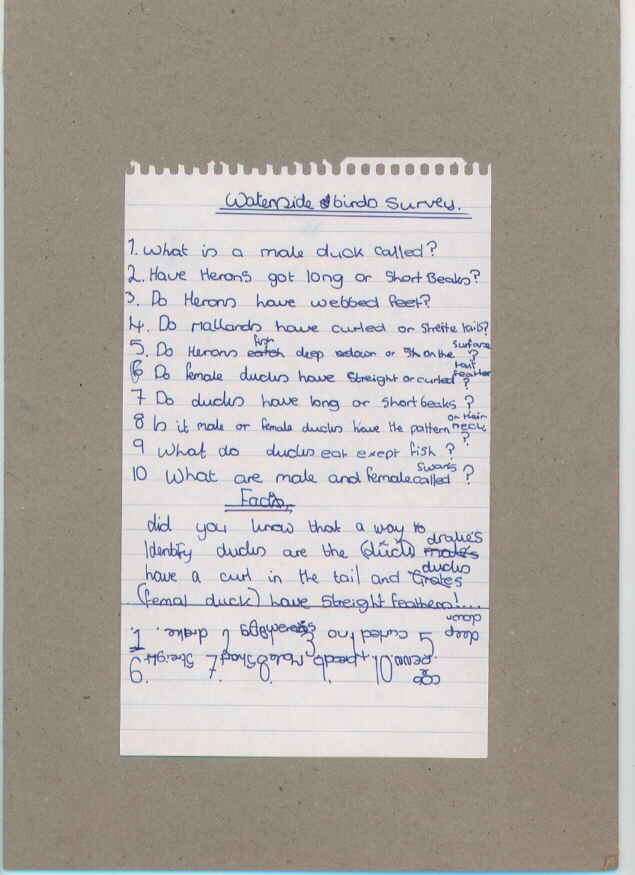 Waterside birds Survey.
1. What is a male duck called?
2. Have Herons got long or short Beaks?
3. Do Herons have webbed feet?
4. Do Mallands have curled or streite tails?
5. Do Herons fish deep down or on the surface?
6 Do female ducks have streight or curled tail feather?
7 Do ducks have long or short beaks?
8 Is it male or female ducks have the pattern on their neck?
9 What do ducks eat exept fish?
10 What are male and female swans called?
Facts
did you know that a way to
Identify ducks are the (duck) drakes
have a curl in the tail and ducks
(femal duck) have streight feathers!....
1. drake
5 deep down
7. Short
9.
10